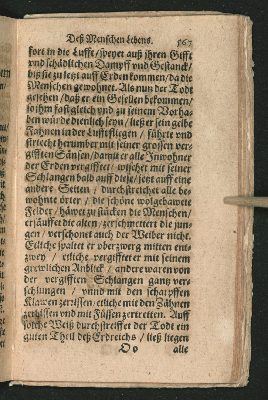 Deß Menschen Lebens. 567
fort in die Lufft / speyet auß ihren Gifft
vnd schädlichen Dampff vnd Gestanck /
biß sie zu letzt auff Erden kommen / da die
Menschen gewohnet. Als nun der Todt
gesehen / daß er ein Gesellen bekommen /
so ihm fast gleich vnd zu seinem Vorha-
ben würde dienlich seyn / ließ er sein gelbe
Fahnen in der Lufft fliegen / führte vnd
striecht herumber mit seiner grossen ver-
gifften Sänsen / damit er alle Inwohner
der Erden vergifftet / wischet mit seiner
Schlangen bald auff diese / jetzt auff eine
andere Seiten / durchstreichet alle be-
wohnte örter / die schöne wolgebawete
Felder / häwet zu stücken die Menschen /
ersäufft die alten / zerschmettert die jun-
gen / verschonet auch der Weiber nicht.
Etliche spaltet er vberzwerg mitten ent-
zwey / etliche vergifftet er mit seinem
grewlichen Anblick / andere waren von
der vergifften Schlangen gantz ver-
schlungen / vnnd mit den scharpffen
Klawen zerrissen / etliche mit den Zähnen
zerbissen vnd mit Füssen zertretten. Auff
solche Weiß durchstreiffet der Todt ein
guten Theil deß Erdreichs / ließ liegen
Oo alle